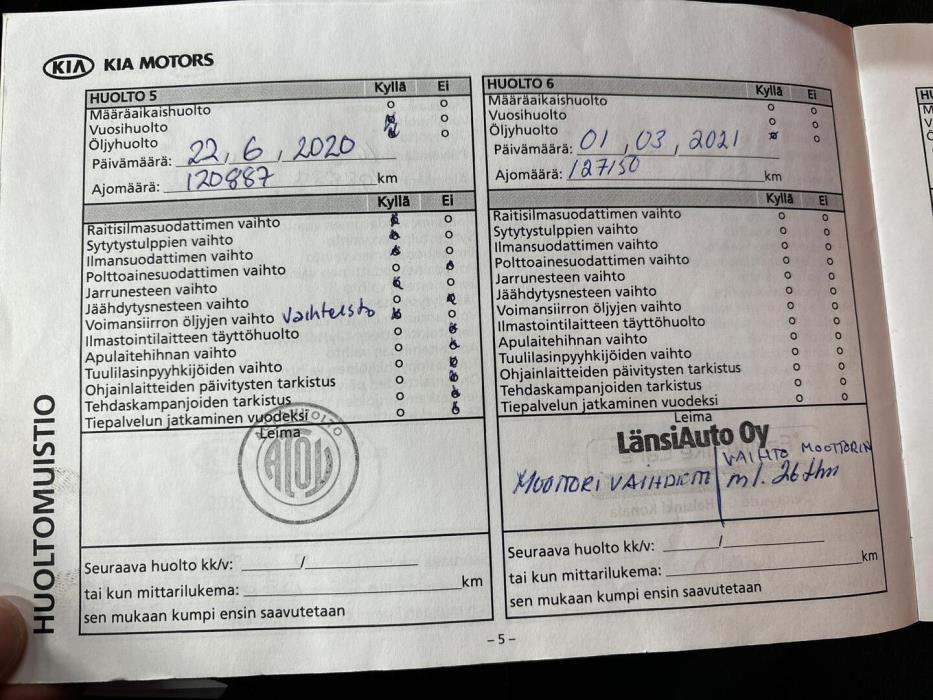 KIA KIA MOTORS
HUOLTOMUISTIO
HUOLTO 5 Kyllä Ei
Määräaikaishuolto
Vuosihuolto
Öljyhuolto
Päivämäärä: 22, 6, 2020
Ajomäärä: 120887 km
Kyllä Ei
Raitisilmasuodattimen vaihto
Sytytystulppien vaihto
Ilmansuodattimen vaihto
Polttoainesuodattimen vaihto
Jarrunesteen vaihto
Jäähdytysnesteen vaihto
Voimansiirron öljyjen vaihto Vaihteisto
Ilmastointilaitteen täyttöhuolto
Apulaitehihnan vaihto
Tuulilasinpyyhkijöiden vaihto
Ohjainlaitteiden päivitysten tarkistus
Tehdaskampanjoiden tarkistus
Tiepalvelun jatkaminen vuodeksi
Leima
Seuraava huolto kk/v: /
tai kun mittarilukema: km
sen mukaan kumpi ensin saavutetaan
HUOLTO 6 Kyllä Ei
Määräaikaishuolto
Vuosihuolto
Öljyhuolto
Päivämäärä: 01, 03, 2021
Ajomäärä: 127150 km
Kyllä Ei
Raitisilmasuodattimen vaihto
Sytytystulppien vaihto
Ilmansuodattimen vaihto
Polttoainesuodattimen vaihto
Jarrunesteen vaihto
Jäähdytysnesteen vaihto
Voimansiirron öljyjen vaihto
Ilmastointilaitteen täyttöhuolto
Apulaitehihnan vaihto
Tuulilasinpyyhkijöiden vaihto
Ohjainlaitteiden päivitysten tarkistus
Tehdaskampanjoiden tarkistus
Tiepalvelun jatkaminen vuodeksi
Leima
LänsiAuto Oy
MOOTTORI VAIHDETTU
VAIHTO MOOTTORIN
ml. 26 tkm
Seuraava huolto kk/v: /
tai kun mittarilukema: km
sen mukaan kumpi ensin saavutetaan
– 5 –